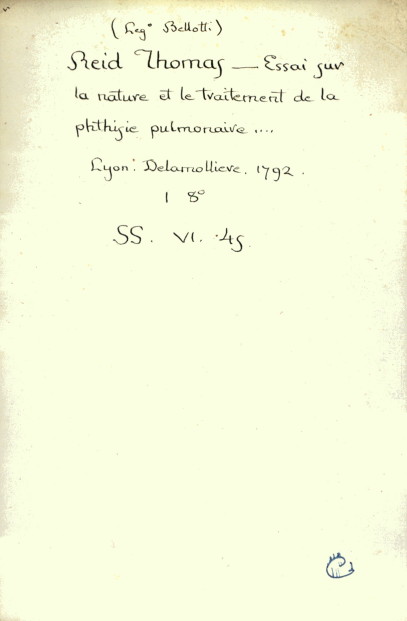 (Leg° Bellotti)
Reid Thomas — Essai sur
la nature et le traitement de la
phthisie pulmonaire ....
Lyon: Delamollieve. 1792.
1 8°
SS. VI. 45